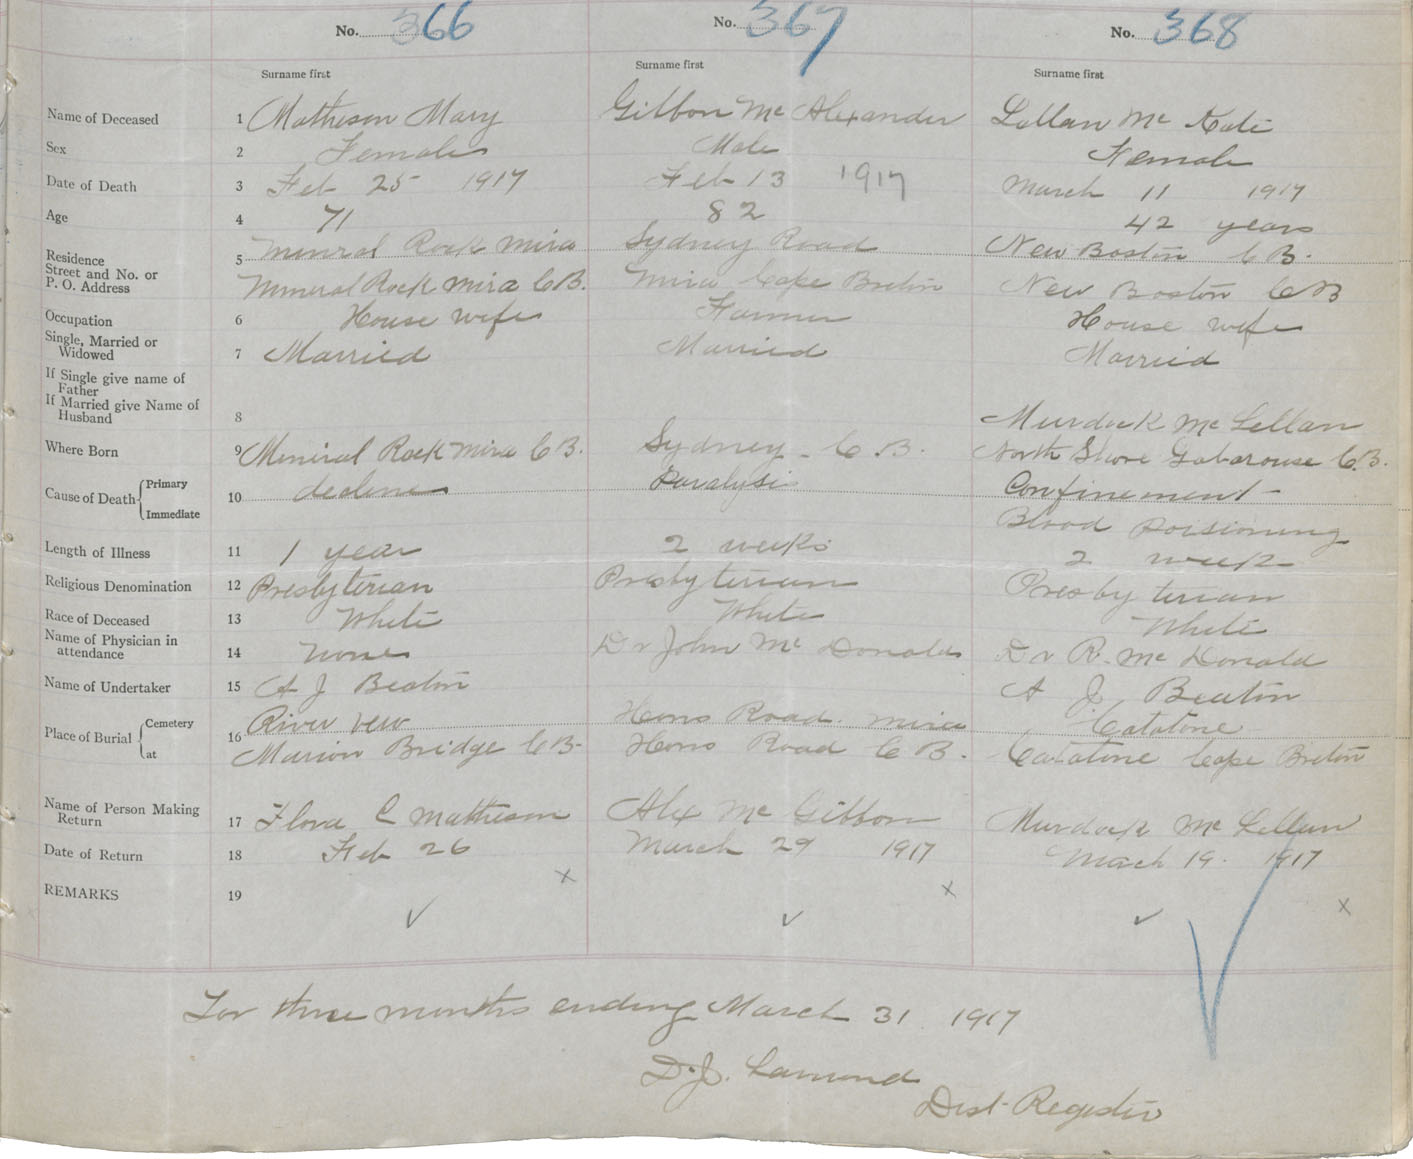 No. 366 No. 367 No. 368
Surname first Surname first Surname first
Name of Deceased 1 Matheson Mary Gibbon Mc Alexander Lellan Mc Kate
Sex 2 Female Male Female
Date of Death 3 Feb 25 1917 Feb 13 1917 March 11 1917
Age 4 71 82 42 years
Residence 5 Minral Rock Mira Sydney Road New Boston C B.
Street and No. or
P. O. Address Mineral Rock Mira C B. Mira Cape Breton New Boston C B
Occupation 6 House wife Farmer House wife
Single, Married or
Widowed 7 Married Married Married
If Single give name of
Father
If Married give Name of
Husband 8 Murdock Mc Lellan
Where Born 9 Miniral Rock Mira C B. Sydney - C. B. North Shore Gabarouse C.B.
Cause of Death Primary 10 decline Paralysis Confinement -
Immediate Blood Poisioning
Length of Illness 11 1 year 2 weeks 2 week
Religious Denomination 12 Presbyterian Presbyterian Presbyterian
Race of Deceased 13 White White White
Name of Physician in
attendance 14 None Dr John Mc Donald Dr R. Mc Donald
Name of Undertaker 15 A J Beaton A J Beaton
Place of Burial Cemetery 16 River vew Road Mira Catatone
at Marion Bridge C B- Road C B. Catatone Cape Breton
Name of Person Making
Return 17 Flora C Matheson Alex Mc Gibbon Murdock Mc Lellan
Date of Return 18 Feb 26 March 29 1917 March 19. 1917
REMARKS 19 x x x
For three months ending March 31 1917
D. J. Lamond
Dist Register